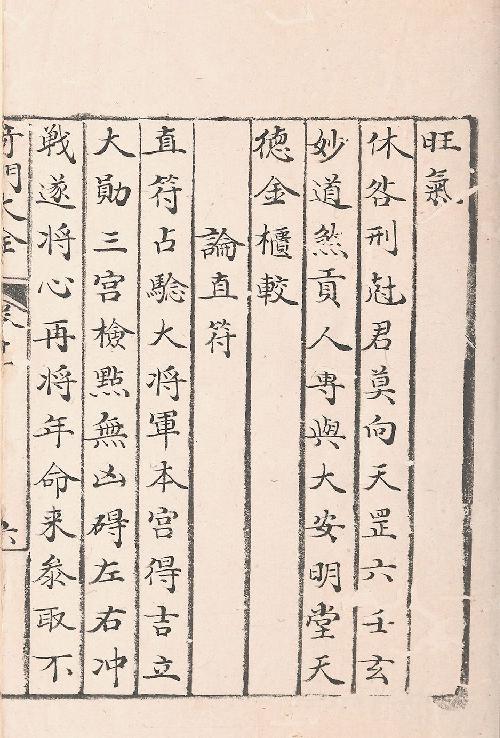 旺氣
休咎刑尅君莫向天罡六壬玄
妙道煞貢人專與大安明堂天
德金櫃較
論直符
直符占驗大將軍本宮得吉立
大勛三宮檢點無凶碍左右冲
戰遂将心再将年命来叅取不
奇門大全
六